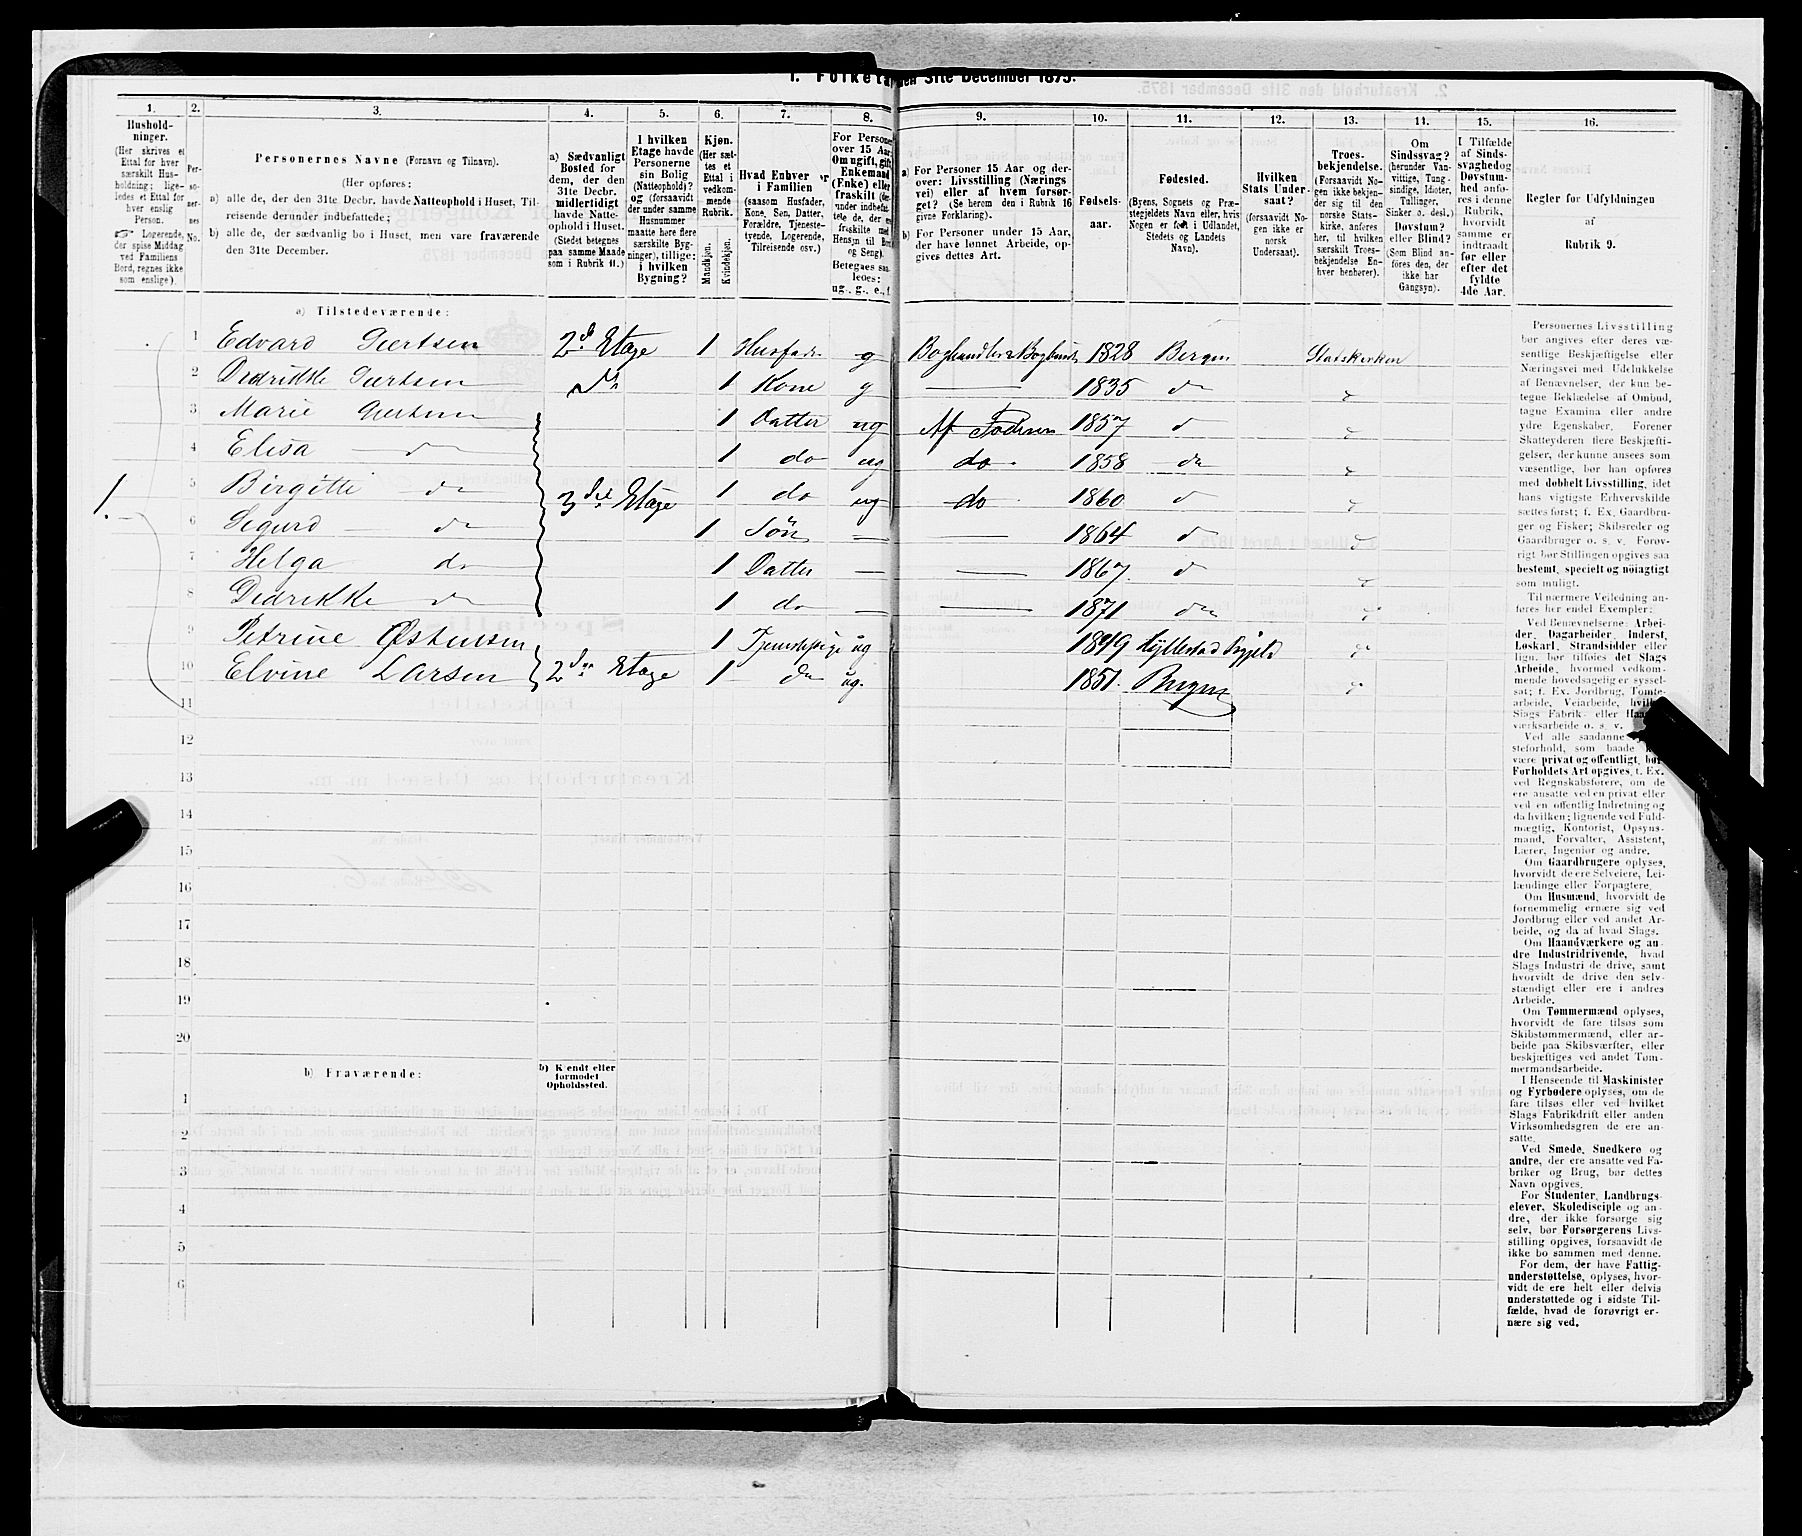 1. Folketal den 31te December 1875.
1. 2. 3. 4. 5. 6. 7. 8. 9. 10. 11. 12. 13. 14. 15. 16.
Husholdninger.
(Her skrives et Ettal for hver særskilt Husholdning; ligeledes et Ettal for hver enslig Person.
☞ Logerende, der spise Middag ved Familiens Bord, regnes ikke som enslige).
Personernes No.
Personernes Navne (Fornavn og Tilnavn).
(Her opføres:
a) alle de, der den 31te Decbr. havde Natteophold i Huset, Tilreisende derunder indbefattede;
b) alle de, der sædvanlig bo i Huset, men vare fraværende den 31te December.
a) Sædvanligt Bosted for dem, der den 31te Decbr. midlertidigt havde Natteophold i Huset.
(Stedet betegnes paa samme Maade som i Rubrik 11.)
I hvilken Etage havde Personerne sin Bolig (Natteophold)? og (forsaavidt der under samme Husnummer maatte høre flere særskilte Bygninger), tillige: i hvilken Bygning?
Kjøn.
(Her sættes et Ettal i vedkommende Rubrik.
Mandkjøn. Kvindekjøn.
Hvad Enhver er i Familien
(saasom Husfader, Kone, Søn, Datter, Forældre, Tjenestetyende, Logerende, Tilreisende osv.)
For Personer over 15 Aar: Om ugift, gift, Enkemand (Enke) eller fraskilt
Betegnes saaledes: ug., g., e., f.
a) For Personer 15 Aar og derover: Livsstilling (Næringsvei) eller af hvem forsørget? (Se herom den i Rubrik 16 givne Forklaring).
b) For Personer under 15 Aar, der have lønnet Arbeide, opgives dettes Art.
Fødselsaar.
Fødested.
(Byens, Sognets og Præstegjeldets Navn eller, hvis Nogen er født i Udlandet, Stedets og Landets Navn).
Hvilken Stats Undersaat?
(forsaavidt Nogen ikke er norsk Undersaat).
Troesbekjendelse.
(Forsaavidt Nogen ikke bekjender sig til den norske Statskirke, anføres her, til hvilken særskilt Troesbekjendelse Enhver henhører).
Om Sindssvag? (herunder Vanvittige, Tungsindige, Idioter, Tullinger, Sinker o. desl.) Døvstum? eller Blind?
(Som Blind anføres den, der ikke har Gangsyn).
I Tilfælde af Sindssvaghed og Døvstumhed anføres i denne Rubrik, hvorvidt samme er indtraadt før eller efter det fyldte 4de Aar.
Regler for Udfyldningen af Rubrik 9.
a) Tilstedeværende:
1 Edvard Giertsen 2d Etage 1 Husfader g 1828 Bergen Statskirken
2 Didrikke Giertsen do 1 Kone g — 1835 do
3 Marie Giertsen 1 Datter ug Af Faderen 1857 d
4 Elisa — do 1 do ug do. 1858 do
1. 5 Birgitte — do 3die Etage 1 do ug do 1860 d
6 Sigurd — do 1 Søn — — 1864 d
7 Helga do 1 Datter — — 1867. d
8 Didrikke do 1 do — — 1871 do
9 Petrine Østensen 1 Tjenestepige ug 1849
10 Elvine Larsen 2den Etage 1 do ug. 1851. Bergen
11
12
13
14
15
16
17
18
19
20
b) Fraværende: b) Kjendt eller formodet Opholdssted.
1
2
3
4
5
6
Personernes Livsstilling
bør angives efter deres væ-
sentlige Beskjæftigelse eller
Næringsvei med Udelukkelse
af Benævnelser, der kun be-
tegne Beklædelse af Ombud,
tagne Examina eller andre
ydre Egenskaber. Forener
Skatteyderen flere Beskjæfti-
gelser, der kunne ansees som
væsentlige, bør han opføres
med dobbelt Livsstilling, idet
hans vigtigste Erhvervskilde
sættes først; f. Ex. Gaardbru-
ger og Fisker; Skibsreder og
Gaardbruger o. s. v. Forøv-
rigt bør Stillingen opgives saa
bestemt, specielt og nöiagtigt
som muligt.
Til nærmere Veiledning an-
føres her endel Exempler:
Ved Benævnelserne: Arbei-
der, Dagarbeider, Inderst,
Løskarl, Strandsidder eller
lign. bør tilføies det Slags
Arbeide, hvormed vedkom-
mende hovedsagelig er syssel-
sat; f. Ex. Jordbrug, Tomte-
arbeide, Veiarbeide, hvilket
Slags Fabrik- eller Haand-
værksarbeide o. s. v.
Ved alle saadanne
steforhold, som baade kan
være privat og offentligt, bør
Forholdets Art opgives, t. Ex.
ved Regnskabsførere, om de
ere ansatte ved en privat eller
ved en offentlig Indretning og
da hvilken; lignende ved Fuld-
mægtig, Kontorist, Opsyns-
mand, Forvalter, Assistent,
Lærer, Ingeniør og andre.
Om Gaardbrugere oplyses,
hvorvidt de ere Selveiere, Lei-
lændinge eller Forpagtere.
Om Husmænd, hvorvidt de
fornemmelig ernære sig ved
Jordbrug eller ved andet Ar-
beide, og da af hvad Slags.
Om Haandværkere og an-
dre Industridrivende, hvad
Slags Industri de drive, samt
hvorvidt de drive den selv-
stændigt eller ere i andres
Arbeide.
Om Tømmermænd oplyses,
hvorvidt de fare tilsøs som
Skibstømmermænd, eller ar-
beide paa Skibsværfter, eller
beskjæftiges ved andet Tøm-
mermandsarbeide.
I Henseende til Maskinister
og Fyrbødere oplyses, om de
fare tilsøs eller ved hvilket
Slags Fabrikdrift eller anden
Virksomhedsgren de ere an-
satte.
Ved Smede, Snedkere og
andre, der ere ansatte ved Fa-
briker og Brug, bør dettes
Navn opgives.
For Studenter, Landbrugs-
elever, Skoledisciple og an-
dre, der ikke forsørge sig
selv, bør Forsørgerens Livs-
stilling opgives, forsaavidt de
ikke bo sammen med denne.
For dem, der have Fattig-
understøttelse, oplyses, hvor-
vidt de ere helt eller delvis
understøttede og i sidste Til-
fælde, hvad de forøvrigt er-
nære sig ved.